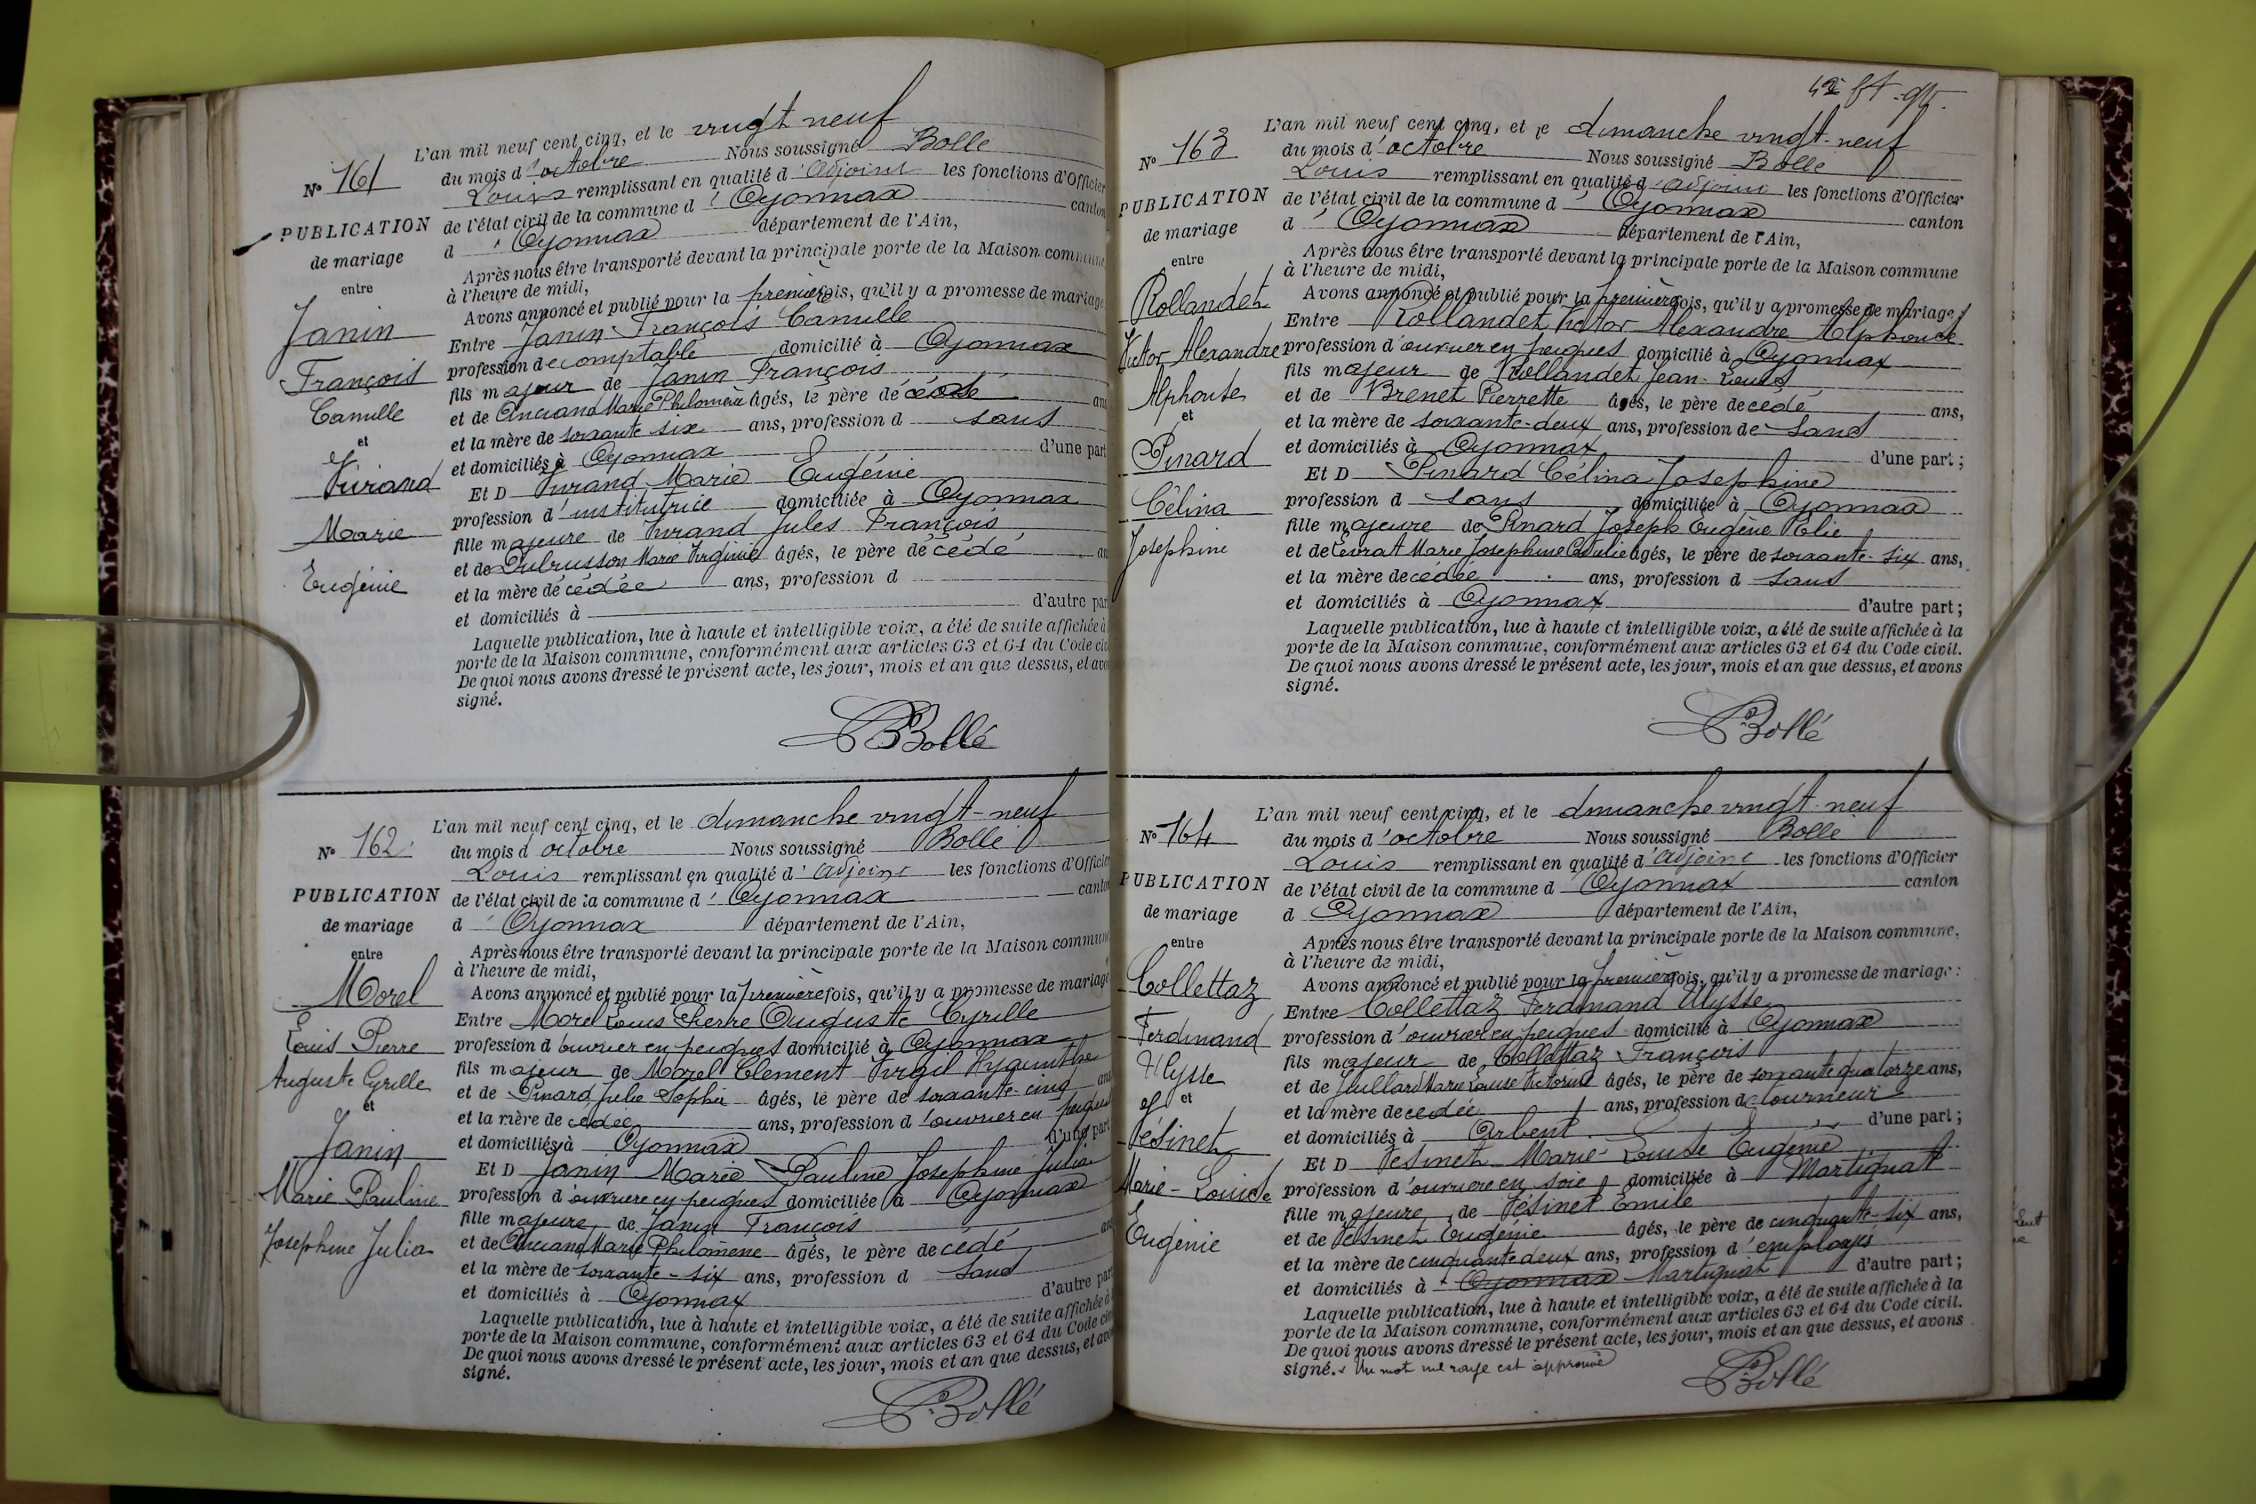 L'an mil neuf cent cinq, et le vingt neuf
N° 161 du mois d'octobre Nous soussigné Bollé
Louis remplissant en qualité d'adjoint les fonctions d'Officier
PUBLICATION de l'état civil de la commune d'Oyonnax canton
de mariage d'Oyonnax département de l'Ain,
entre Après nous être transporté devant la principale porte de la Maison commune
à l'heure de midi,
Janin Avons annoncé et publié pour la première fois, qu'il y a promesse de mariage
Entre Janin François Camille
François profession de comptable domicilié à Oyonnax
fils majeur de Janin François
Camille et de Anciand Marie Philomène âgés, le père décédé ans
et et la mère de soixante six ans, profession d sans
et domiciliés à Oyonnax d'une part
Vuirand Et D Vurand Marie Eugénie
profession d'institutrice domiciliée à Oyonnax
Marie fille majeure de Vurand Jules François
et de Dubrusson Marie Virginie âgés, le père décédé an
Eugénie et la mère décédée ans, profession d
et domiciliés à d'autre par
Laquelle publication, lue à haute et intelligible voix, a été de suite affichée à
porte de la Maison commune, conformément aux articles 63 et 64 du Code civ
De quoi nous avons dressé le présent acte, les jour, mois et an que dessus, et avo
signé.
Bollé
L'an mil neuf cent cinq, et le dimanche vingt-neuf
N° 162 du mois d octobre Nous soussigné Bollé
Louis remplissant en qualité d'adjoint les fonctions d'Officier
PUBLICATION de l'état civil de la commune d'Oyonnax canton
de mariage d'Oyonnax département de l'Ain,
entre Après nous être transporté devant la principale porte de la Maison commune
à l'heure de midi,
Morel Avons annoncé et publié pour la première fois, qu'il y a promesse de mariage
Entre Morel Louis Pierre Auguste Cyrille
Louis Pierre profession d'ouvrier en peignes domicilié à Oyonnax
fils majeur de Morel Clement Virgil Hyacinthe
Auguste Cyrille et de Pinard Julie Sophie âgés, le père de soixante-cinq ans
et et la mère décédée ans, profession d'ouvrier en peignes
Janin et domiciliés à Oyonnax d'une part
Et D Janin Marie Pauline Josephine Julia
Marie Pauline profession d'ouvriere en peignes domiciliée à Oyonnax
fille majeure de Janin François
Josephine Julia et de Anciand Marie Philomène âgés, le père decedé an
et la mère de soixante-six ans, profession d sans
et domiciliés à Oyonnax d'autre par
Laquelle publication, lue à haute et intelligible voix, a été de suite affichée à
porte de la Maison commune, conformément aux articles 63 et 64 du Code civ
De quoi nous avons dressé le présent acte, les jour, mois et an que dessus, et avo
signé.
Bollé
L'an mil neuf cent cinq, et le dimanche vingt-neuf
N° 163 du mois d'octobre Nous soussigné Bollé
Louis remplissant en qualité d'adjoint les fonctions d'Officier
PUBLICATION de l'état civil de la commune d'Oyonnax canton
de mariage d'Oyonnax département de l'Ain,
entre Après nous être transporté devant la principale porte de la Maison commune
à l'heure de midi,
Rollandet Avons annoncé et publié pour la première fois, qu'il y a promesse de mariage;
Entre Rollandet Victor Alexandre Alphonse
Victor Alexandre profession d'ouvrier en peignes domicilié à Oyonnax
fils majeur de Rollandet Jean-Louis
Alphonse et de Brenet Pierrette âgés, le père decedé ans,
et et la mère de soixante-deux ans, profession de Sans
Pinard et domiciliés à Oyonnax d'une part;
Et D Pinard Célina Josephine
Célina profession d sans domiciliée à Oyonnax
fille majeure de Pinard Joseph Eugène Elie
Josephine et de Marie Josephine âgés, le père de soixante-six ans,
et la mère decédée ans, profession d sans
et domiciliés à Oyonnax d'autre part;
Laquelle publication, lue à haute et intelligible voix, a été de suite affichée à la
porte de la Maison commune, conformément aux articles 63 et 64 du Code civil.
De quoi nous avons dressé le présent acte, les jour, mois et an que dessus, et avons
signé.
Bollé
L'an mil neuf cent cinq, et le dimanche vingt-neuf
N° 164 du mois d'octobre Nous soussigné Bollé
Louis remplissant en qualité d'adjoint les fonctions d'Officier
PUBLICATION de l'état civil de la commune d'Oyonnax canton
de mariage d Oyonnax département de l'Ain,
entre Après nous être transporté devant la principale porte de la Maison commune,
à l'heure de midi,
Collettaz Avons annoncé et publié pour la première fois, qu'il y a promesse de mariage:
Entre Collettaz Ferdinand Ulysse
Ferdinand profession d'ouvrier en peignes domicilié à Oyonnax
fils majeur de Collettaz François
Ulysse et de Juillard Marie Louise Victorine âgés, le père de soixante quatorze ans,
et et la mère decedée ans, profession de tourneur
Pésinet et domiciliés à Arbent d'une part;
Et D Pésinet Marie-Louise Eugénie
Marie-Louise profession d'ouvriere en soie domiciliée à Martignat
fille majeure de Pésinet Emile
Eugénie et de Pésinet Eugénie âgés, le père de cinquante-six ans,
et la mère de cinquante deux ans, profession d'employés
et domiciliés à Oyonnax Martignat d'autre part;
Laquelle publication, lue à haute et intelligible voix, a été de suite affichée à la
porte de la Maison commune, conformément aux articles 63 et 64 du Code civil.
De quoi nous avons dressé le présent acte, les jour, mois et an que dessus, et avons
signé. Un mot nul rayé est approuvé
Bollé